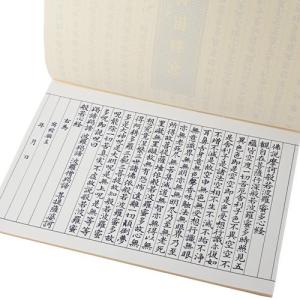 佛説摩訶般若波羅蜜多心經
觀自在菩薩行深般若波羅蜜多時照見五
蘊皆空度一切苦厄舎利子色不異空空不
異色色即是空空即是色受想行識亦復如
是舎利子是諸法空相不生不滅不垢不淨
不增不減是故空中無色無受想行識無眼
耳鼻舌身意無色聲香味觸法無眼界乃至
無意識界無無明亦無無明盡乃至無老死
亦無老死盡無苦集滅道無智亦無得以無
所得故菩提薩埵依般若波羅蜜多故心無
罣礙無罣礙故無有恐怖遠離一切顛倒夢
想究竟涅槃三世諸佛依般若波羅蜜多故
得阿耨多羅三藐三菩提故知般若波羅蜜
多是大神呪是大明呪是無上呪是無等等
呪能除一切苦真實不虛故説般若波羅蜜
多呪即説呪曰
羯諦羯諦波羅羯諦波羅僧羯諦菩提薩婆訶
般若心經
右爲
年 月 日